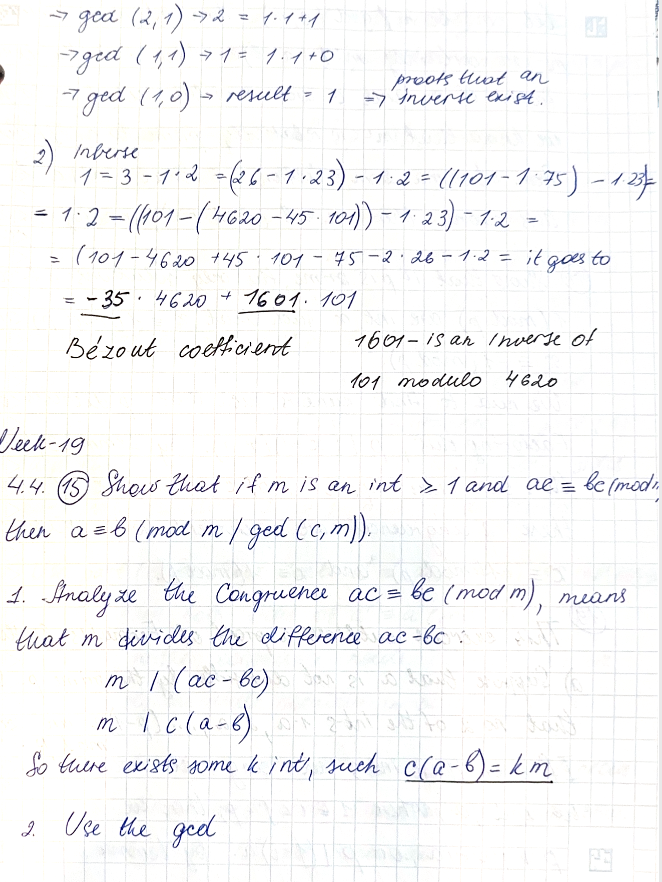 → gcd (2,1) → 2 = 1·1+1
→ gcd (1,1) → 1 = 1·1+0
→ gcd (1,0) → result = 1 => proofs that an inverse exist.
2) Inverse
1 = 3 - 1·2 = (26 - 1·23) - 1·2 = ((101 - 1·75) - 1·23)=
= 1·2 = ((101 - (4620 - 45·101)) - 1·23) - 1·2 =
= (101 - 4620 + 45·101 - 75 - 2·26 - 1·2 = it goes to
= -35·4620 + 1601·101
Bézout coefficient 1601 - is an inverse of
101 modulo 4620
Week-19
4.4. 15 Show that if m is an int ≥ 1 and ac ≡ bc (mod
then a ≡ b (mod m / gcd (c, m)).
1. Analyze the Congruence ac ≡ bc (mod m), means
that m divides the difference ac-bc.
m | (ac - bc)
m | c(a-b)
So there exists some k int, such c(a-b) = km
2. Use the gcd